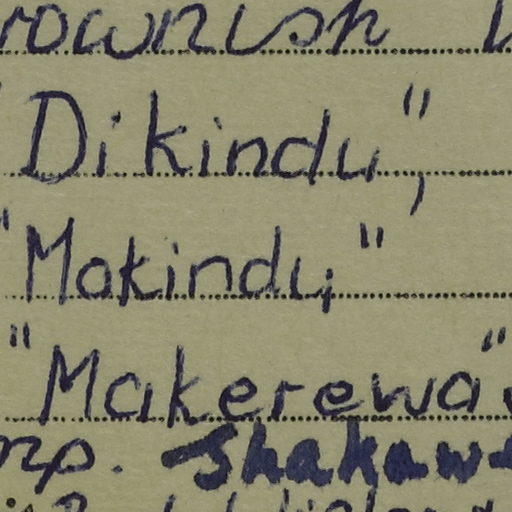 rownish
"Dikindu",
"Mokindu,"
"Makerewa"
mp. Shakawe